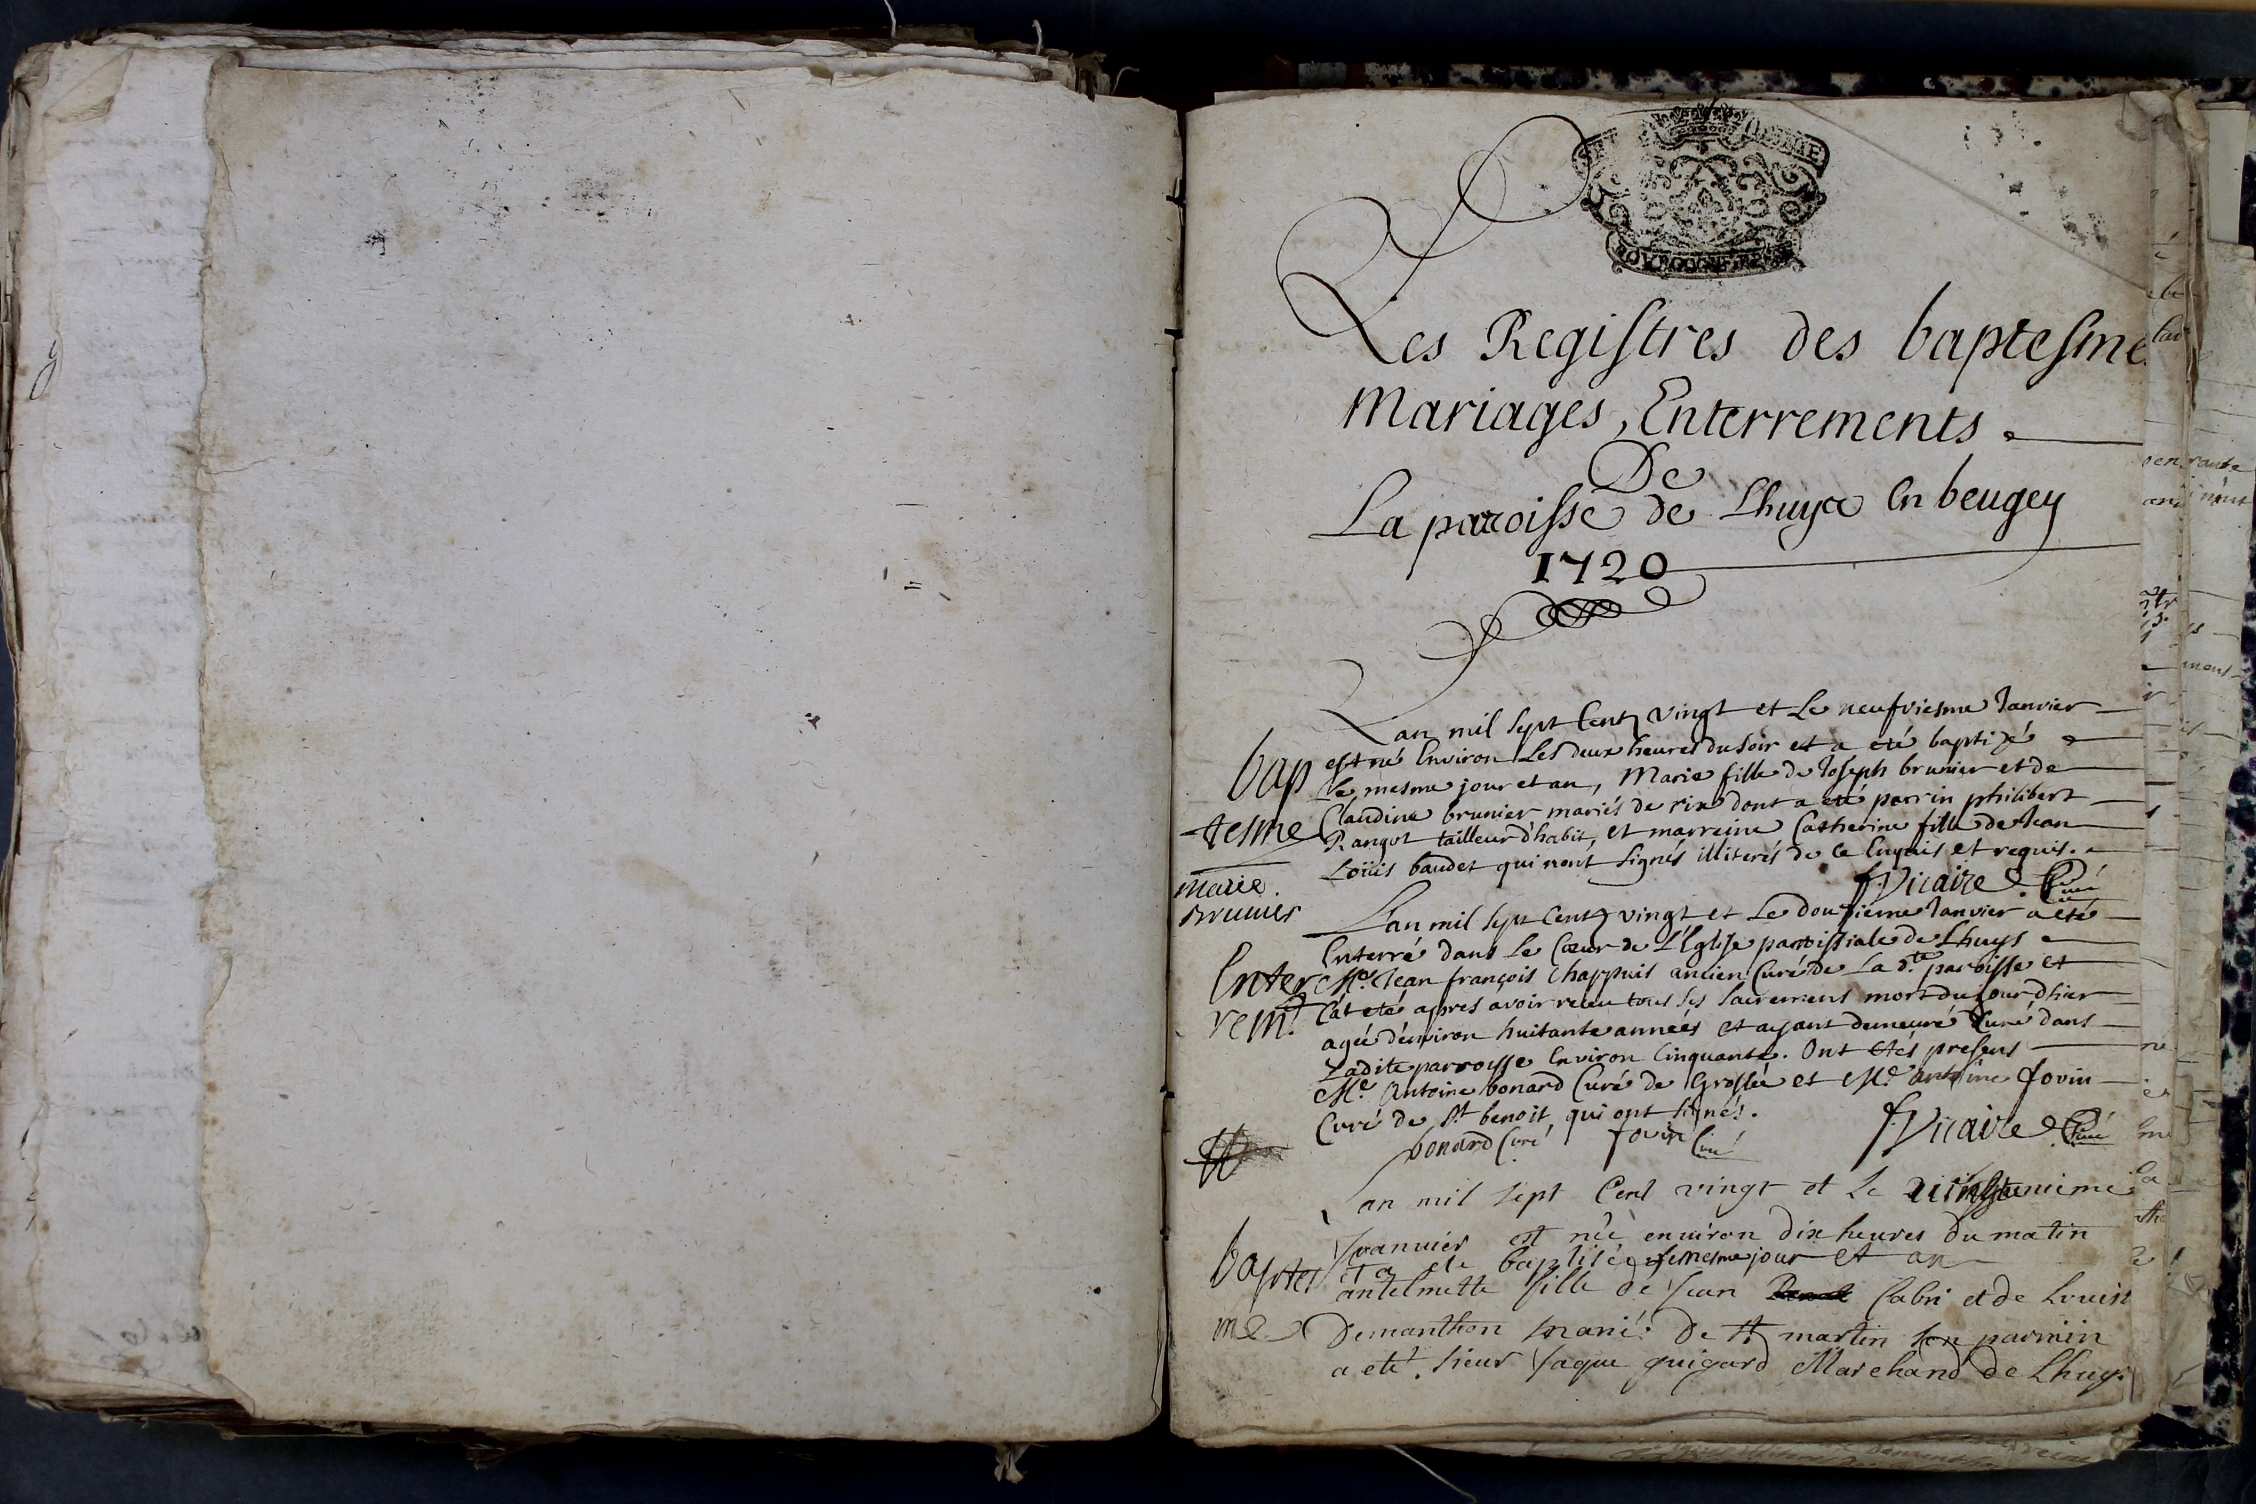 Les Registres des baptesme
Mariages, Enterrements
De
La paroisse de Lhuys En beugey
1720
Lan mil sept Cent vingt et Le neufviesme Janvier
est né Environ Les deux heures du soir et a eté baptizé
Le mesme jour et an, Marie fille de Joseph brunier et de
Claudine brunier mariés de rix dont a eté parrin philibert
Rangot tailleur d'habit, et marreine Catherine fille de Jean
Loüis baudet qui nont signés illiterés de ce Enquis et requis.
Vicaire Curé
bap
tesme
Marie
Brunier
Lan mil sept Cent vingt et Le douzieme Janvier a eté
Enterré dans Le Cœur de L'Eglise paroissiale de Lhuys
Mre Jean françois Chappuis ancien Curé de La d.te paroisse et
C'at eté apres avoir receu tous ses sacremens mort du jour d'hier
agée d'environ huitante années et ayant demeuré Curé dans
Ladite parroisse Environ Cinquante. Ont etés presens
Mre Antoine bonard Curé de Groslée et Mre antoine Jovin
Curé de St benoit, qui ont signés.
bonard Curé Jovin Curé Vicaire Curé
Enter
remt
Lan mil sept Cent vingt et Le vingtunieme
Janvier est née environ dix heures du matin
et a ete baptisée le mesme jour et an
antelmette fille de Jean Cabri et de Louise
Demanthon mariés de St martin son parrain
a eté. sieur Jaque guigard Marchand de Lhuys
baptes
me